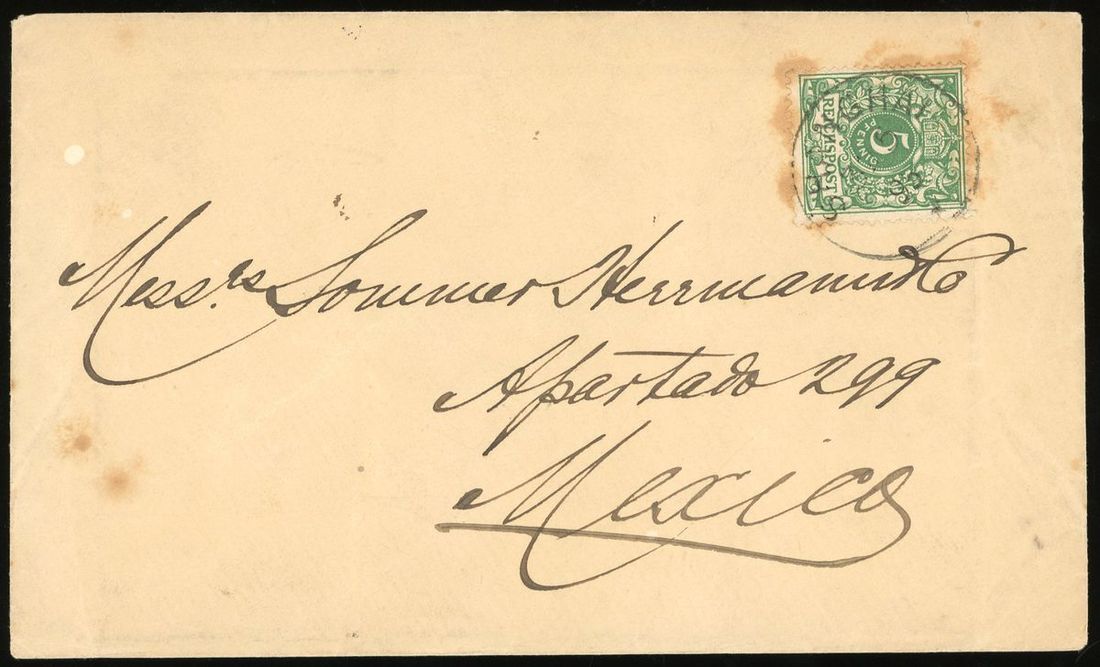 REICHSPOST
5
PFENNIG
Messrs Sommer Herrmann & Co
Apartado 299
Mexico